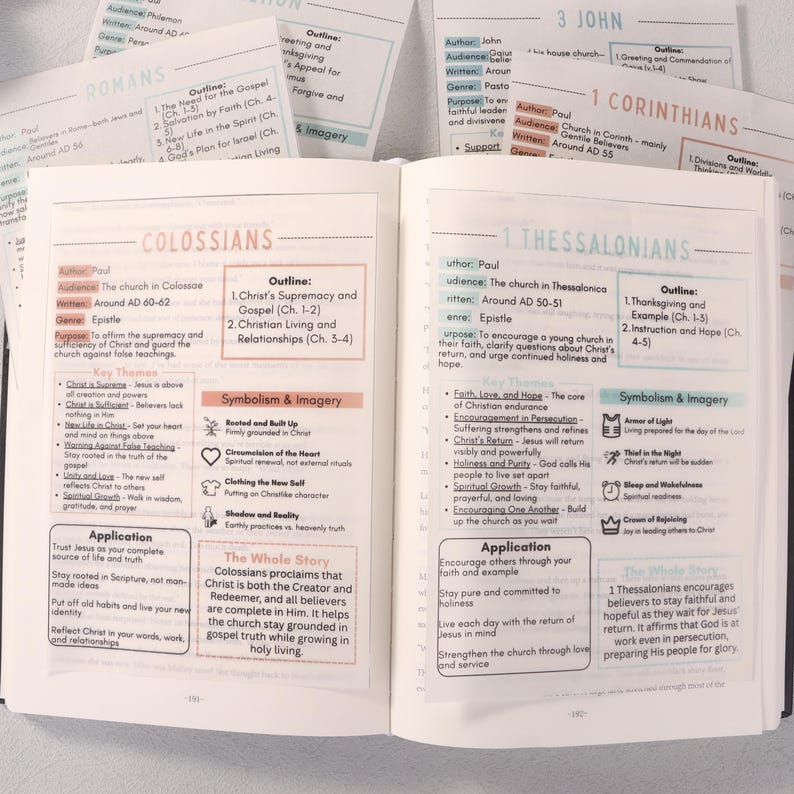 Audience: Philemon
Written: Around AD 60
Genre:
Purpose:
Greeting and
Forgive and
& Imagery
3 JOHN
Author: John
Audience: Gaius and his house church—
Written: Around
Genre: Pasto
Purpose: To
faithful leader
and divisivene
Support
Outline:
1. Greeting and Commendation of
Gaius (v.1-4)
ROMANS
Author: Paul
Believers in Rome—both Jews and
Gentiles
Around AD 56
Outline:
1. The Need for the Gospel
(Ch. 1-3)
2. Salvation by Faith (Ch. 4-
5)
3. New Life in the Spirit (Ch.
6-8)
4. God's Plan for Israel (Ch.
Christian Living
1 CORINTHIANS
Author: Paul
Audience: Church in Corinth - mainly
Gentile Believers
Written: Around AD 55
Genre:
Outline:
1. Divisions and Worldly
COLOSSIANS
Author: Paul
Audience: The church in Colossae
Written: Around AD 60-62
Genre: Epistle
Purpose: To affirm the supremacy and
sufficiency of Christ and guard the
church against false teachings.
Outline:
1. Christ's Supremacy and
Gospel (Ch. 1-2)
2. Christian Living and
Relationships (Ch. 3-4)
Key Themes
• Christ is Supreme - Jesus is above
all creation and powers
• Christ is Sufficient - Believers lack
nothing in Him
• New Life in Christ - Set your heart
and mind on things above
• Warning Against False Teaching -
Stay rooted in the truth of the
gospel
• Unity and Love - The new self
reflects Christ to others
• Spiritual Growth - Walk in wisdom,
gratitude, and prayer
Symbolism & Imagery
Rooted and Built Up
Firmly grounded in Christ
Circumcision of the Heart
Spiritual renewal, not external rituals
Clothing the New Self
Putting on Christlike character
Shadow and Reality
Earthly practices vs. heavenly truth
Application
Trust Jesus as your complete
source of life and truth
Stay rooted in Scripture, not man-
made ideas
Put off old habits and live your new
identity
Reflect Christ in your words, work,
and relationships
The Whole Story
Colossians proclaims that
Christ is both the Creator and
Redeemer, and all believers
are complete in Him. It helps
the church stay grounded in
gospel truth while growing in
holy living.
-191-
1 THESSALONIANS
uthor: Paul
udience: The church in Thessalonica
ritten: Around AD 50-51
enre: Epistle
urpose: To encourage a young church in
their faith, clarify questions about Christ's
return, and urge continued holiness and
hope.
Outline:
1. Thanksgiving and
Example (Ch. 1-3)
2. Instruction and Hope (Ch.
4-5)
Key Themes
• Faith, Love, and Hope - The core
of Christian endurance
• Encouragement in Persecution -
Suffering strengthens and refines
• Christ's Return - Jesus will return
visibly and powerfully
• Holiness and Purity - God calls His
people to live set apart
• Spiritual Growth - Stay faithful,
prayerful, and loving
• Encouraging One Another - Build
up the church as you wait
Symbolism & Imagery
Armor of Light
Living prepared for the day of the Lord
Thief in the Night
Christ's return will be sudden
Sleep and Wakefulness
Spiritual readiness
Crown of Rejoicing
Joy in leading others to Christ
Application
Encourage others through your
faith and example
Stay pure and committed to
holiness
Live each day with the return of
Jesus in mind
Strengthen the church through love
and service
The Whole Story
1 Thessalonians encourages
believers to stay faithful and
hopeful as they wait for Jesus'
return. It affirms that God is at
work even in persecution,
preparing His people for glory.
-192-